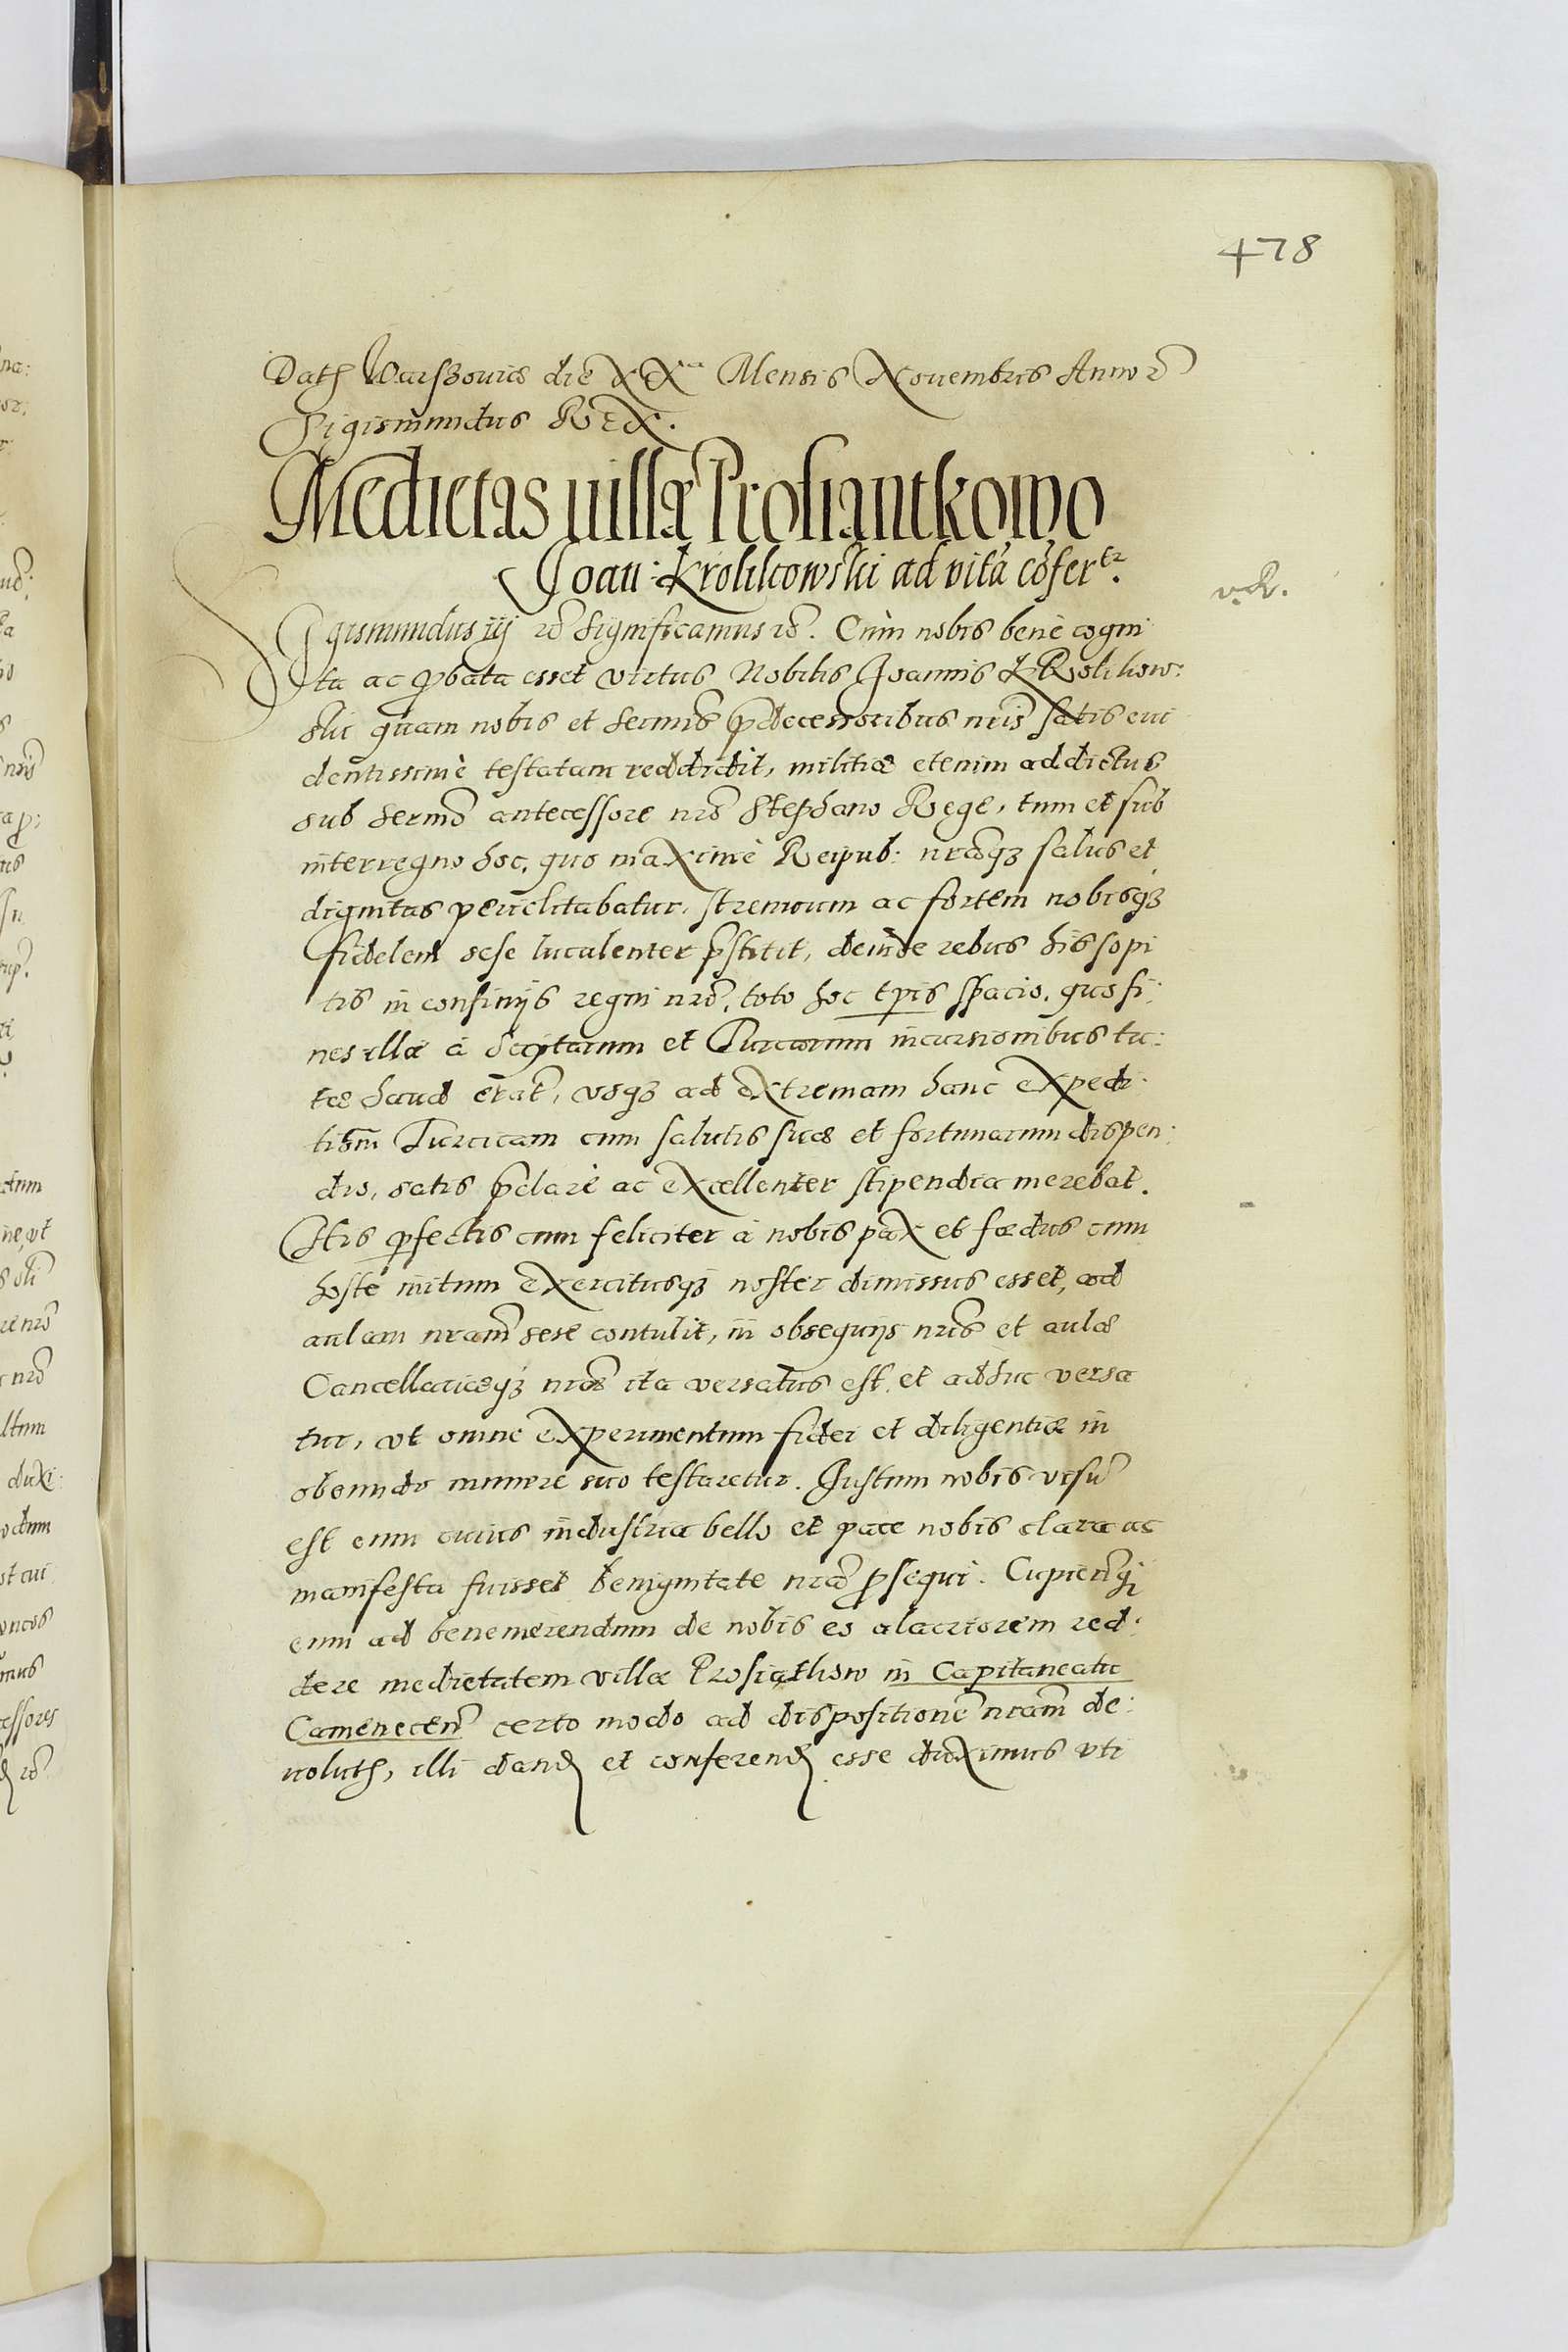 478
Dat[ꝭ] Warszouiæ die XXa Mensis Nouembris Anno rc̃
Sigismundus REX.
Medietas uillæ Prosiantkowo
Joan: Krolikowski ad vitã cõfertr.
v.R.
Sigismundus iij rc̃ Significamus rc̃. Cùm nobis benè cogni
ta ac ꝓbata esset virtus Nobilis Joannis KRolikow:
ski quam nobis et Sermis p̃decessoribus nr̃is satis eui
dentissimè testatam reddidit, militiæ etenim addictus
sub Sermo antecessore nrõ Stephano Rege, tum et sub
interregno hoc, quo maximè Reipub: nræqȝ salus et
dignitas periclitabatur, strenuum ac fortem nobisqȝ
fidelem sese luculenter p̃stitit, deinde rebus his sopi
tis in confinijs regni nrĩ, toto hoc tp̃is spacio, quo fi:
nes illæ à Scytarum et Turcarum incursionibus tu:
tæ haud erãt, vsqȝ ad extremam hanc expedi:
tiõm Turcicam cum salutis suæ et fortunarum dispen:
dio, satis p̃clarè ac excellenter stipendia merebat.
Itis ꝑfectis cum feliciter à nobis pax et fœdus cum
hoste initum exercitusqȝ noster dimissus esset, ad
aulam nram̃ sese contulit, in obsequijs nrĩs et aulæ
Cancellariæqȝ nræ̃ ita versatus est, et adhuc versa
tur, vt omne experimentum fidei et diligentiæ in
obeundo munere suo testaretur. Justum nobis visũ
est eum cuius industria bello et pace nobis clara ac
manifesta fuisset benignitate nrã ꝓsequi. Cupientesq̃
eum ad benemerendum de nobis eo alacriorem red:
dere medietatem villæ Prosiątkow in Capitaneatu
Camenecen̄ certo modo ad dispositionẽ nram̃ de:
uolutꝭ, illi dandꝭ et conferendꝭ esse duximus vti